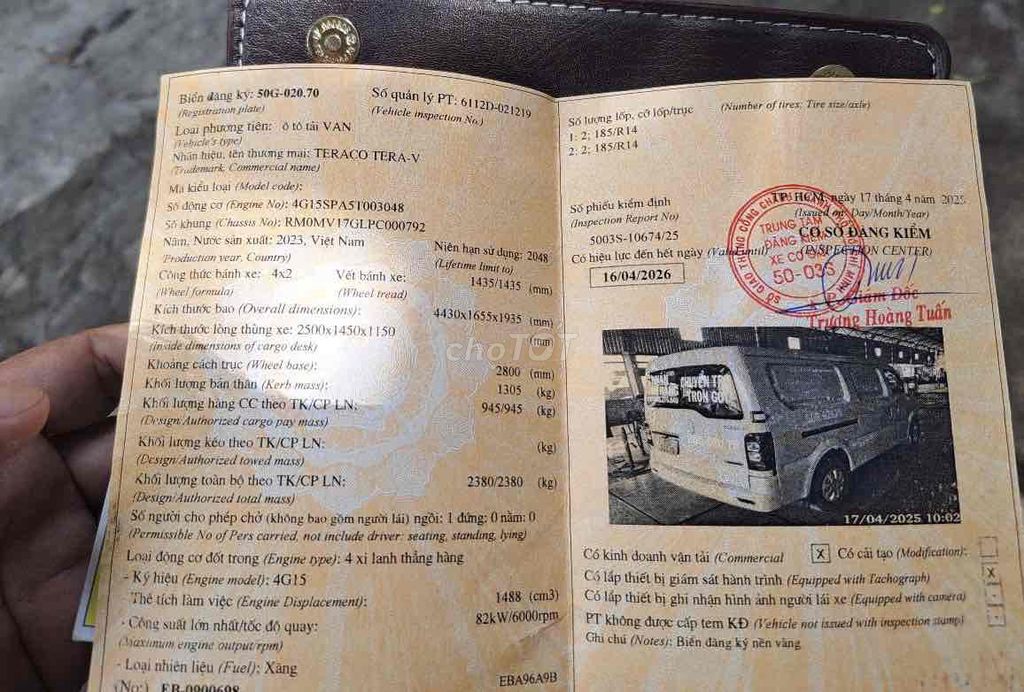 Biển đăng ký: 50G-020.70
(Registration plate)
Số quản lý PT: 6112D-021219
(Vehicle inspection No.)
Loại phương tiện: ô tô tải VAN
(Vehicle's type)
Nhãn hiệu, tên thương mại: TERACO TERA-V
(Trademark, Commercial name)
Mã kiểu loại (Model code):
Số động cơ (Engine No): 4G15SPA5T003048
Số khung (Chassis No): RM0MV17GLPC000792
Năm, Nước sản xuất: 2023, Việt Nam
(Production year, Country)
Niên hạn sử dụng: 2048
(Lifetime limit to)
Công thức bánh xe: 4x2
(Wheel formula)
Vết bánh xe:
(Wheel tread)
1435/1435 (mm)
Kích thước bao (Overall dimensions):
4430x1655x1935 (mm)
Kích thước lòng thùng xe: 2500x1450x1150
(mm)
(Inside dimensions of cargo desk)
Khoảng cách trục (Wheel base):
2800 (mm)
Khối lượng bản thân (Kerb mass):
1305 (kg)
Khối lượng hàng CC theo TK/CP LN:
945/945 (kg)
(Design/Authorized cargo pay mass)
Khối lượng kéo theo TK/CP LN:
(kg)
(Design/Authorized towed mass)
Khối lượng toàn bộ theo TK/CP LN:
2380/2380 (kg)
(Design/Authorized total mass)
Số người cho phép chở (không bao gồm người lái) ngồi: 1 đứng: 0 nằm: 0
(Permissible No of Pers carried, not include driver: seating, standing, lying)
Loại động cơ đốt trong (Engine type): 4 xi lanh thẳng hàng
- Ký hiệu (Engine model): 4G15
Thể tích làm việc (Engine Displacement):
1488 (cm3)
- Công suất lớn nhất/tốc độ quay:
82kW/6000rpm
(Maximum engine output/rpm)
- Loại nhiên liệu (Fuel): Xăng
(No:) EB-0900698
EBA96A9B
Số lượng lốp, cỡ lốp/trục
(Number of tires: Tire size/axle)
1: 2; 185/R14
2: 2; 185/R14
TP. HCM, ngày 17 tháng 4 năm 2025
(Issued on: Day/Month/Year)
Số phiếu kiểm định
(Inspection Report No)
CƠ SỞ ĐĂNG KIỂM
(INSPECTION CENTER)
5003S-10674/25
Có hiệu lực đến hết ngày (Valid until)
16/04/2026
TRUNG TÂM
ĐĂNG KIỂM
XE CƠ GIỚI
50-03S
P. Giám Đốc
Trương Hoàng Tuấn
CHUYÊN
TRỌN GÓI
17/04/2025 10:02
Có kinh doanh vận tải (Commercial
x
Có cải tạo (Modification):
Có lắp thiết bị giám sát hành trình (Equipped with Tachograph)
x
Có lắp thiết bị ghi nhận hình ảnh người lái xe (Equipped with camera)
PT không được cấp tem KĐ (Vehicle not issued with inspection stamp)
Ghi chú (Notes): Biển đăng ký nền vàng
choTỐT